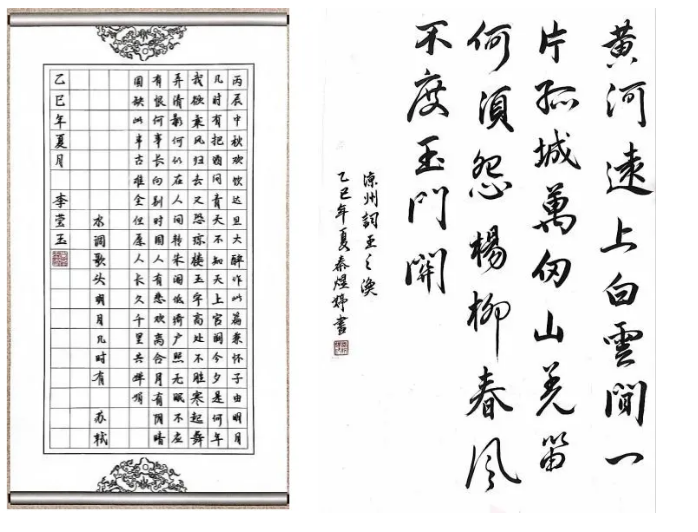 丙辰中秋欢饮达旦大醉作此篇兼怀子由明月
几时有把酒问青天不知天上宫阙今夕是何年
我欲乘风归去又恐琼楼玉宇高处不胜寒起舞
弄清影何似在人间转朱阁低绮户照无眠不应
有恨何事长向别时圆人有悲欢离合月有阴晴
圆缺此事古难全但愿人长久千里共婵娟
水调歌头明月几时有 苏轼
乙巳年夏月 李莹玉
黄河遠上白雲間一
片孤城萬仞山羌笛
何須怨楊柳春风
不度玉門關
凉州詞王之涣
乙巳年夏秦煜婷書